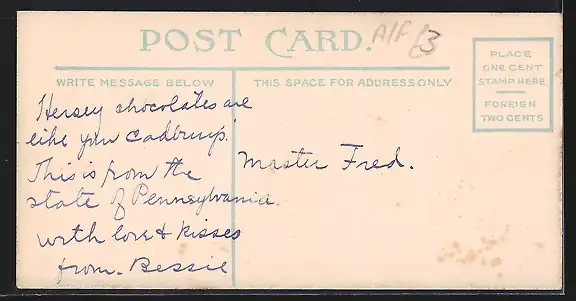 POST CARD.
A/F
3
PLACE
ONE CENT
STAMP HERE
FOREIGN
TWO CENTS
WRITE MESSAGE BELOW
THIS SPACE FOR ADDRESS ONLY
Hersey chocolates are
like your Cadburys.
This is from the
state of Pennsylvania.
with love & kisses
from. Bessie
Master Fred.